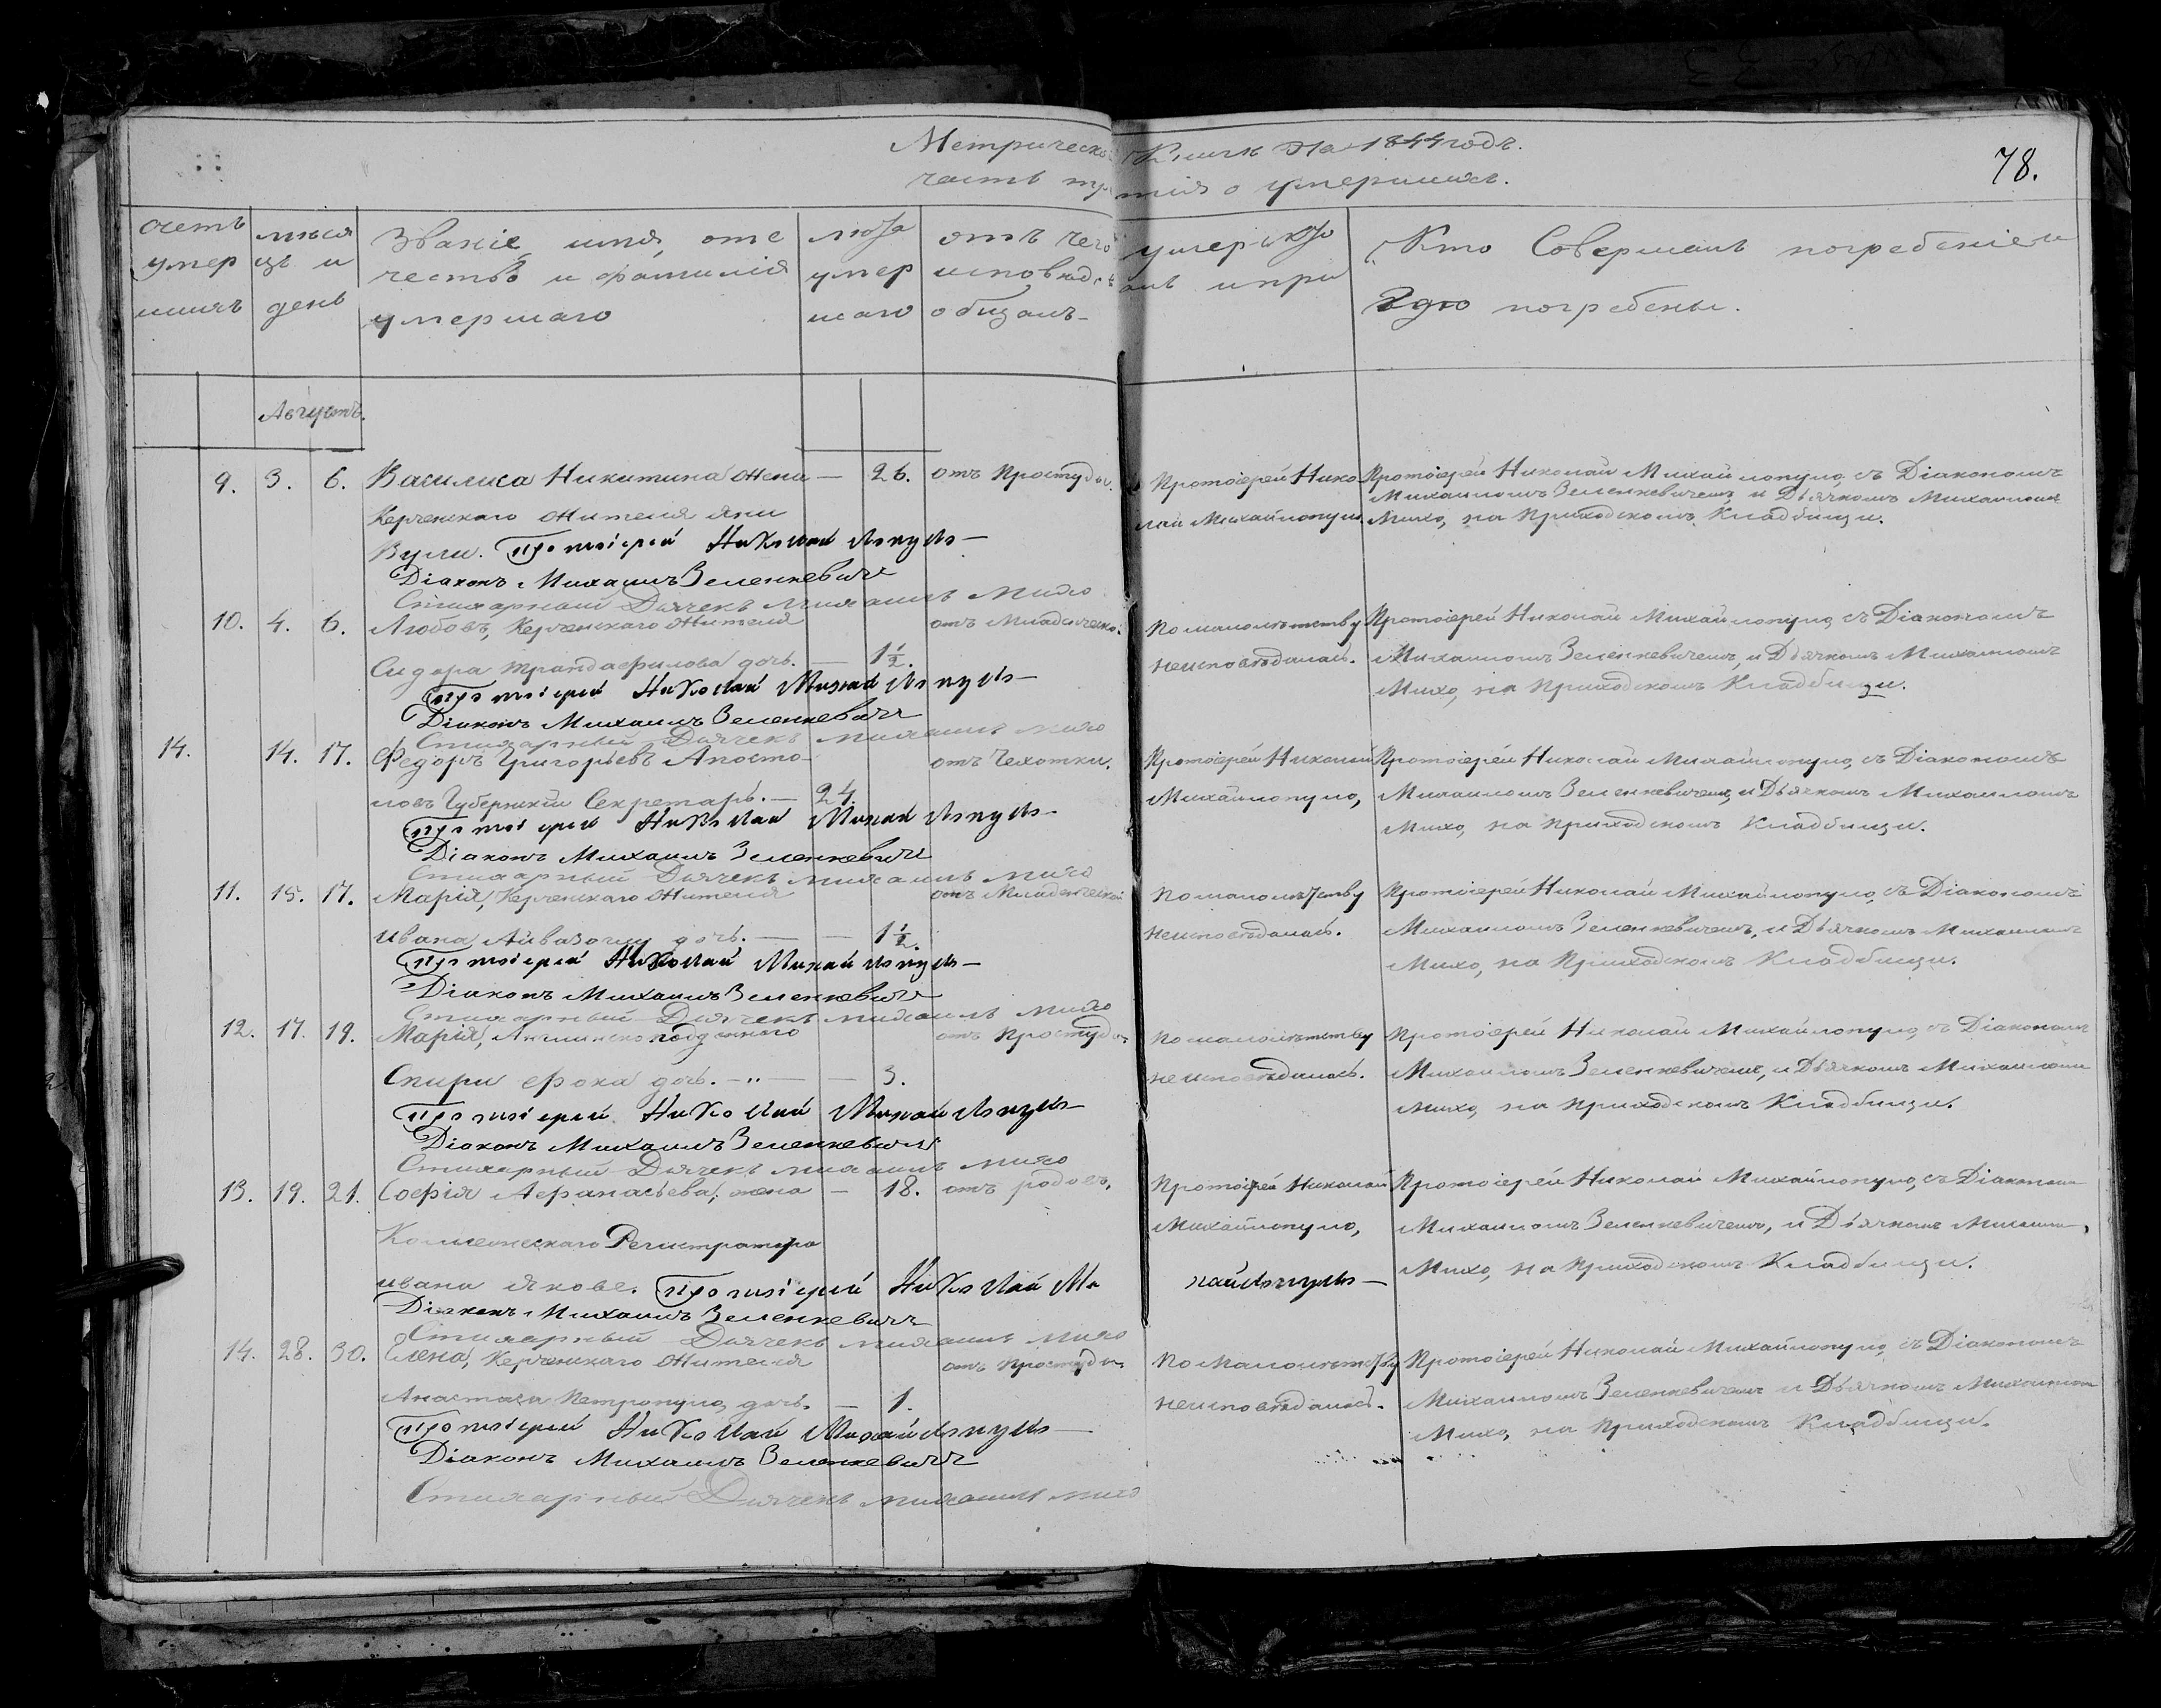 Метрической Книги на 1844 годъ.
78.
часть третія о умершихъ.
счетъ умер шихъ
мѣся цъ и день
Званіе, имя, оте чество и фамилія умершаго
лѣта умер шаго
отъ чего умеръ
исповѣд
общалъ
и кто
и при
Кто Совершалъ погребеніе и
гдѣ погребены.
Августъ.
9. 3. 6. Василиса Никитина жена — 26. отъ Простуды. Протоіерей Нико Протоіерей Николай Михайлопуло, съ Діакономъ
Михаиломъ Зеленкевичемъ, и Дьячкомъ Михаиломъ
Керченскаго жителя Яни лай Михайлопуло. Михо, на Приходскомъ Кладбищи.
Вули. Протоіерей Николай лопуло —
Діаконъ Михаилъ Зеленкевичъ
Стихарный Дьячекъ Михаилъ Михо
10. 4. 6. Любовь, Керченскаго жителя отъ Младенческой. По малолѣтству Протоіерей Николай Михайлопуло, съ Діакономъ
Сидора Трандафилова дочь. — 1½. неисповѣдалась. Михаиломъ Зеленкевичемъ, и Дьячкомъ Михаиломъ
Михо, на Приходскомъ Кладбищи.
Протоіерей Николай Михайлопуло —
Діаконъ Михаилъ Зеленкевичъ
Стихарный Дьячекъ Михаилъ Михо
14. 14. 17. Федоръ Григорьевъ Апосто- отъ Чахотки. Протоіерей Николай Протоіерей Николай Михайлопуло, съ Діакономъ
ловъ Губернскій Секретарь. — 24. Михайлопуло, Михаиломъ Зеленкевичемъ, и Дьячкомъ Михаиломъ
Михо, на Приходскомъ Кладбищи.
Протоіерей Николай Михайлопуло —
Діаконъ Михаилъ Зеленкевичъ
Стихарный Дьячекъ Михаилъ Михо
11. 15. 17. Марія, Керченскаго жителя отъ Младенческой По малолѣтству Протоіерей Николай Михайлопуло, съ Діакономъ
Ивана дочь. — — 1½. неисповѣдалась. Михаиломъ Зеленкевичемъ, и Дьячкомъ Михаиломъ
Михо, на Приходскомъ Кладбищи.
Протоіерей Николай Михайлопуло —
Діаконъ Михаилъ Зеленкевичъ
Стихарный Дьячекъ Михаилъ Михо
12. 17. 19. Марія, Англинско подданнаго отъ Простуды По малолѣтству Протоіерей Николай Михайлопуло, съ Діакономъ
Спири Фока дочь. — — 3. неисповѣдалась. Михаиломъ Зеленкевичемъ, и Дьячкомъ Михаиломъ
Михо, на Приходскомъ Кладбищи.
Протоіерей Николай Михайлопуло —
Діаконъ Михаилъ Зеленкевичъ
Стихарный Дьячекъ Михаилъ Михо
13. 19. 21. Софія Афанасьева, жена — 18. отъ родовъ. Протоіерей Николай Протоіерей Николай Михайлопуло, съ Діакономъ
Колежскаго Регистратора Михайлопуло, Михаиломъ Зеленкевичемъ, и Дьячкомъ Михаиломъ,
Михо, на Приходскомъ Кладбищи.
Ивана Якове. Протоіерей Николай Ми хайлопуло —
Діаконъ Михаилъ Зеленкевичъ
Стихарный Дьячекъ Михаилъ Михо
14. 28. 30. Елена, Керченскаго жителя отъ Простуды По Малолѣтству Протоіерей Николай Михайлопуло, съ Діакономъ
Анастаса Петропуло, дочь. — 1. неисповѣдалась. Михаиломъ Зеленкевичемъ и Дьячкомъ Михаиломъ
Михо, на Приходскомъ Кладбищи.
Протоіерей Николай Михайлопуло —
Діаконъ Михаилъ Зеленкевичъ
Стихарный Дьячекъ Михаилъ Михо